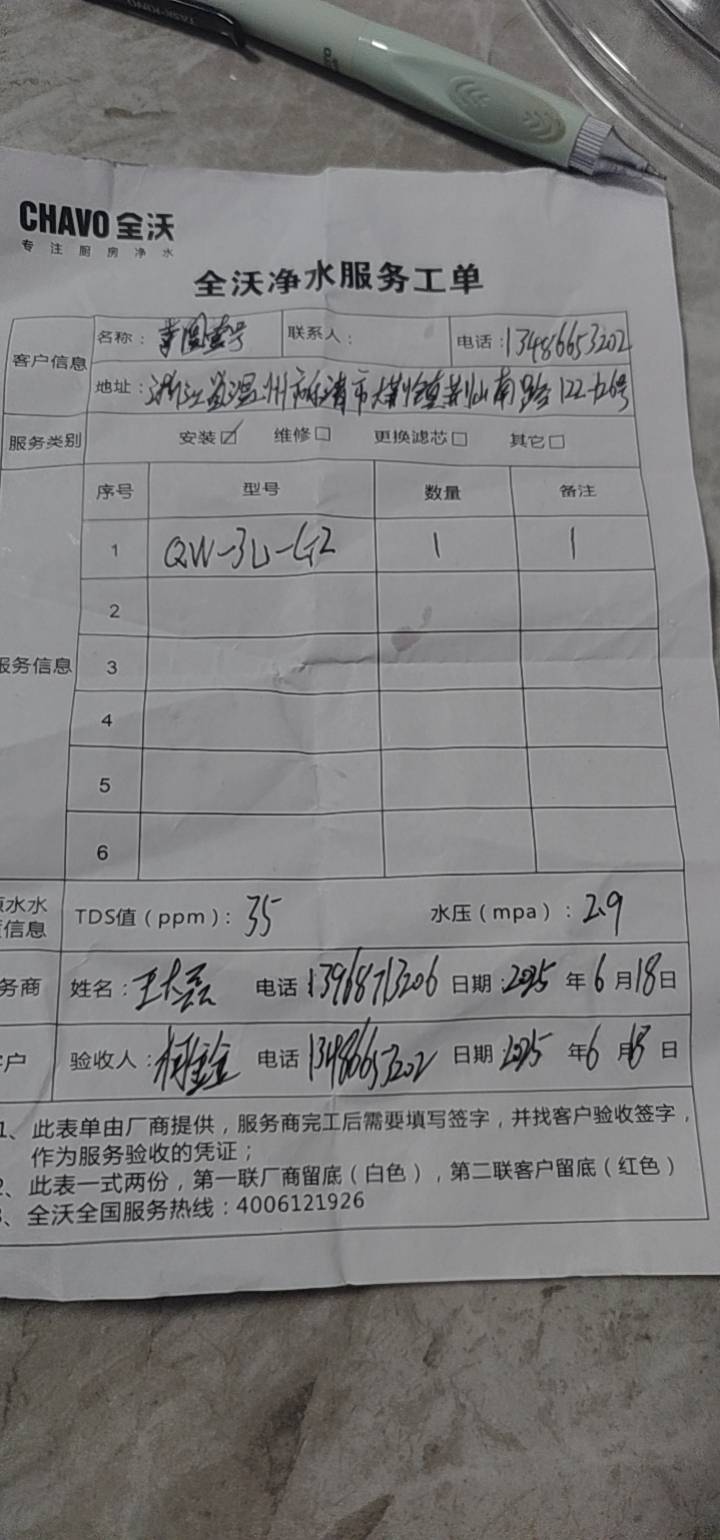 CHAVO 全沃
专注厨房净水
全沃净水服务工单
客户信息 名称： 联系人： 电话：13486653202
地址：浙江省温州市乐清市大荆镇荆山南路122-126号
服务类别 安装☑ 维修□ 更换滤芯□ 其它□
序号 型号 数量 备注
1 QW-3L-G2 1 1
2
服务信息 3
4
5
6
水水 TDS值（ppm）：35 水压（mpa）：2.9
信息
务商 姓名：王大磊 电话 13968713206 日期：2025年6月18日
户 验收人： 电话 13486653202 日期 2025年6月18日
1、此表单由厂商提供，服务商完工后需要填写签字，并找客户验收签字，
作为服务验收的凭证；
2、此表一式两份，第一联厂商留底（白色），第二联客户留底（红色）
3、全沃全国服务热线：4006121926